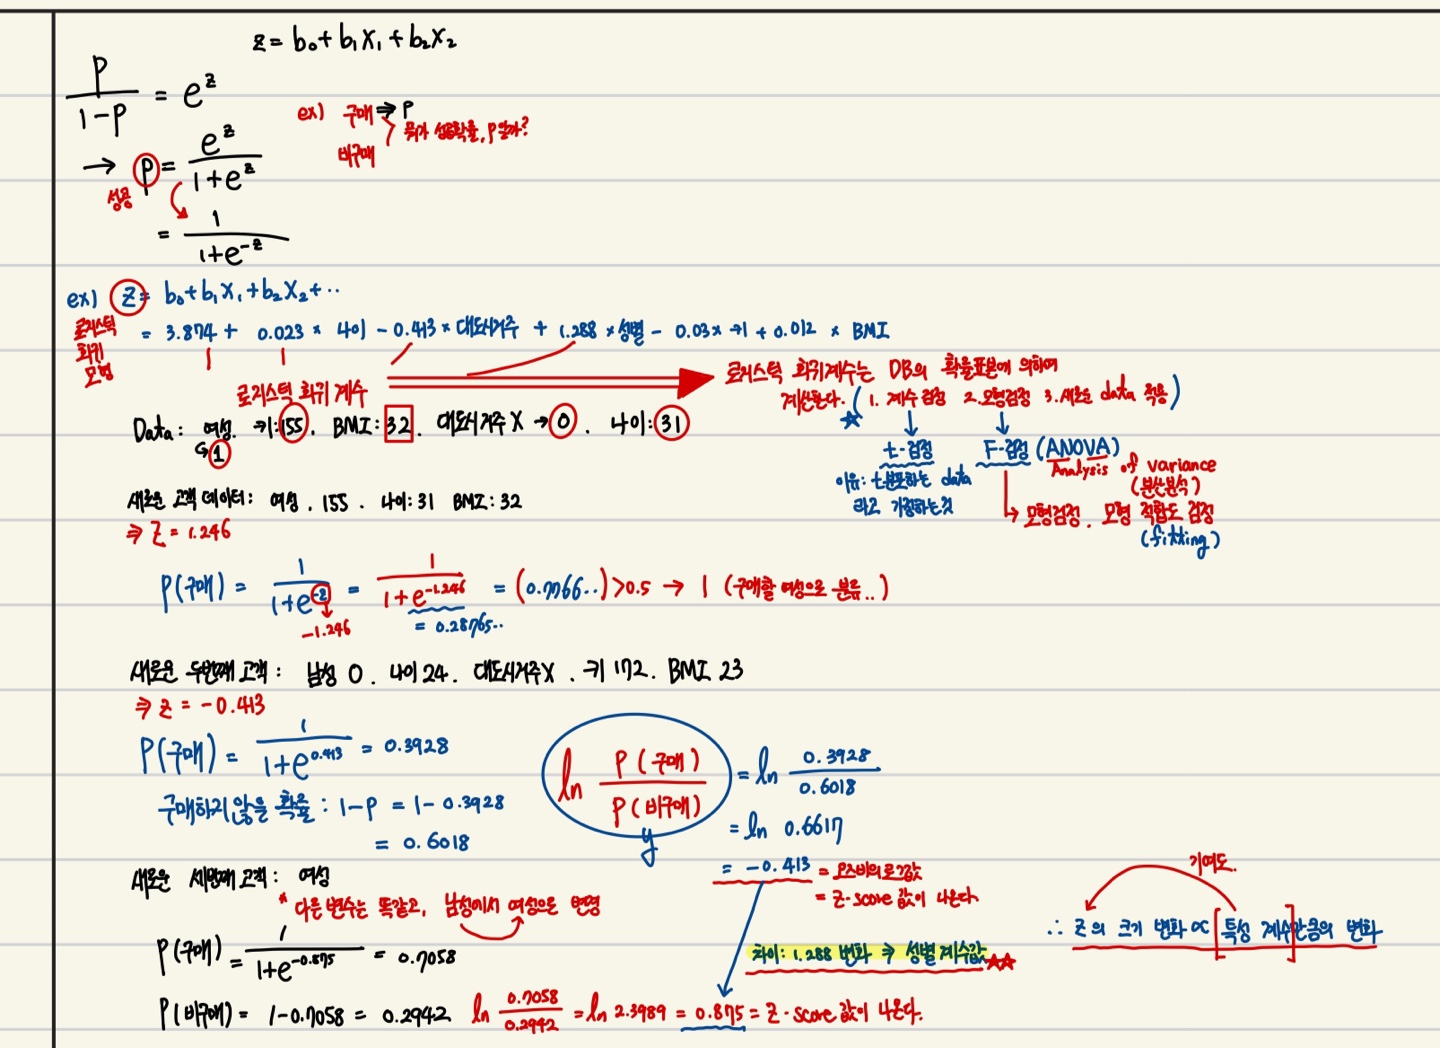 z = b₀ + b₁X₁ + b₂X₂
P/(1-P) = e^z
ex) 구매 ⇒ P
비구매
뭐가 성공확률, P일까?
→ P = e^z/(1+e^z)
성공
= 1/(1+e^-z)
ex) z = b₀ + b₁X₁ + b₂X₂ + ··
로지스틱 회귀 모형
= 3.874 + 0.023 × 나이 - 0.413 × 대도시거주 + 1.288 × 성별 - 0.03 × 키 + 0.012 × BMI
로지스틱 회귀 계수
로지스틱 회귀계수는 DB의 확률표본에 의하여
계산된다. (1. 계수검정 2. 모형검정 3. 새로운 data 적용)
Data: 여성. 키:155. BMI:32. 대도시거주 X → 0. 나이:31
↳ 1
t-검정 F-검정 (ANOVA)
Analysis of variance
(분산분석)
이유: t분포하는 data
라고 가정하는것
→ 모형검정. 모형 적합도 검정
(fitting)
새로운 고객 데이터: 여성. 155. 나이:31 BMI:32
⇒ Z = 1.246
P(구매) = 1/(1+e^-z) = 1/(1+e^-1.246) = (0.7766..) > 0.5 → 1 (구매할 여성으로 분류..)
-1.246
= 0.28765..
새로운 두번째 고객: 남성 0. 나이 24. 대도시거주X. 키 172. BMI 23
⇒ z = -0.413
P(구매) = 1/(1+e^0.413) = 0.3928
구매하지 않을 확률: 1-P = 1-0.3928
= 0.6018
ln P(구매)/P(비구매) = ln 0.3928/0.6018
y
= ln 0.6617
= -0.413 = 오즈비의 로그값
= Z-score 값이 나온다.
새로운 세번째 고객: 여성
* 다른 변수는 똑같고, 남성에서 여성으로 변경
P(구매) = 1/(1+e^-0.875) = 0.7058
차이: 1.288 변화 ⇒ 성별 계수값 ☆☆
기여도.
∴ Z의 크기 변화 ∝ [특성 계수]만큼의 변화
P(비구매) = 1-0.7058 = 0.2942 ln 0.7058/0.2942 = ln 2.3989 = 0.875 = Z-score 값이 나온다.